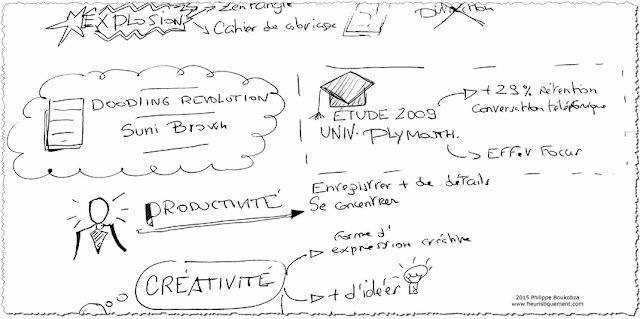 EXPLOSION
Zentangle
Cahier de coloriage
DOODLING REVOLUTION
Suni Brown
ETUDE 2009
UNIV. PLYMOUTH.
+ 29% Rétention
Conversation téléphonique
EFFET FOCUS
PRODUCTIVITÉ
Enregistrer + de détails
Se concentrer
CRÉATIVITÉ
forme d'
expression créative
+ d'idées
2015 Philippe Boukobza
www.heuristiquement.com